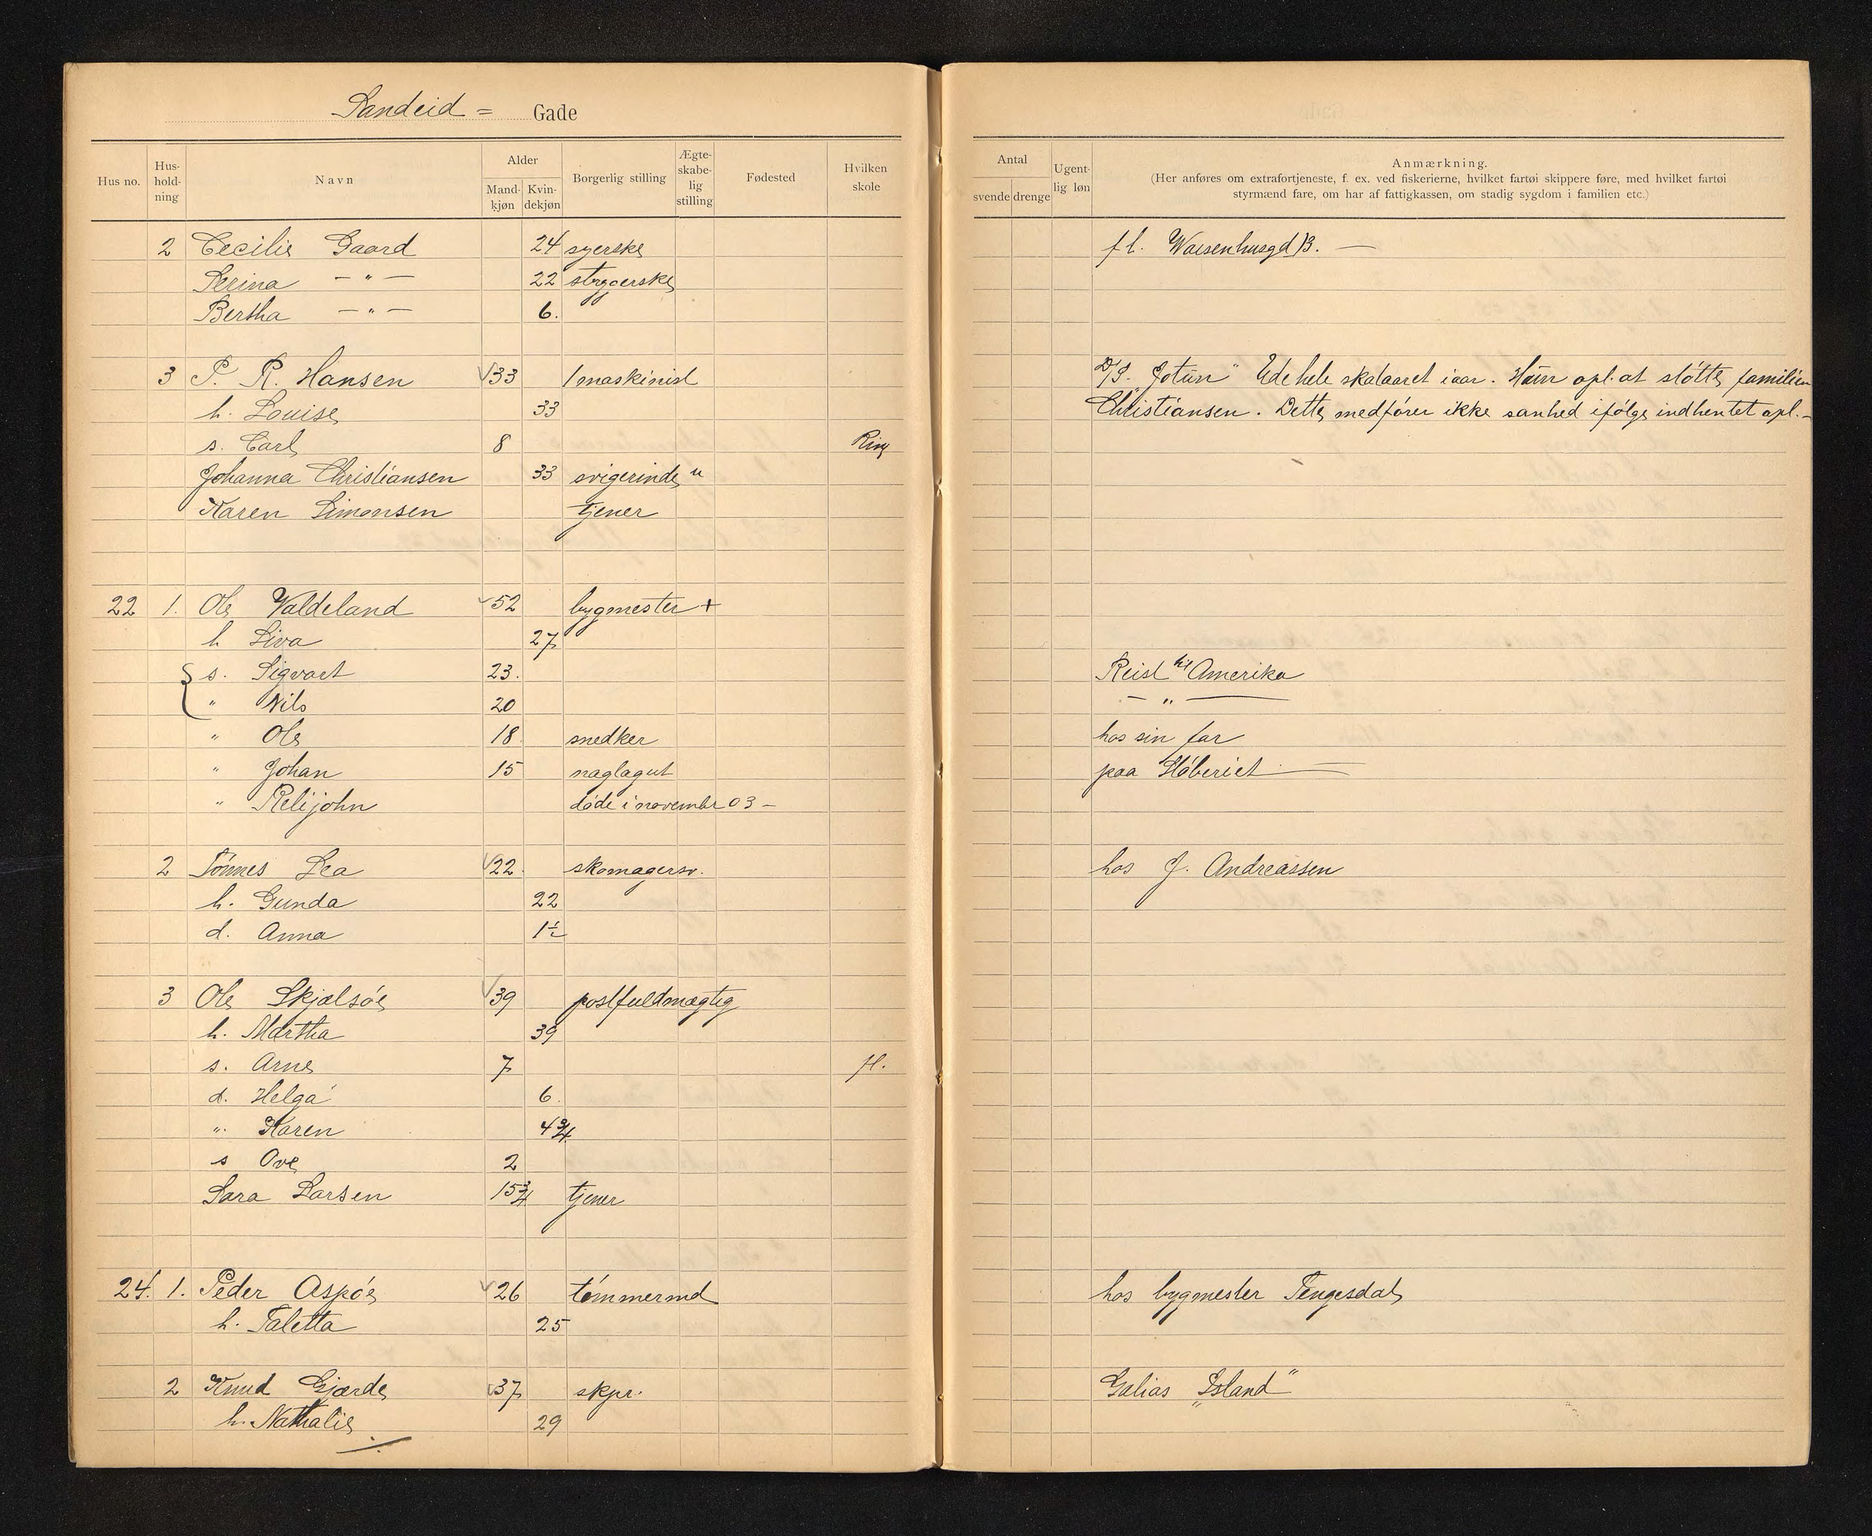 Sandeid = Gade
Hus no. Hus-hold-ning Navn Alder Mand-kjøn Kvin-dekjøn Borgerlig stilling Ægte-skabe-lig stilling Fødested Hvilken skole
Antal svende drenge Ugent-lig løn Anmærkning.
(Her anføres om extrafortjeneste, f. ex. ved fiskerierne, hvilket fartøi skippere føre, med hvilket fartøi
styrmænd fare, om har af fattigkassen, om stadig sygdom i familien etc.)
2 Cecilie Gaard 24 syerske fl. Waisenhusgd 13. —
Serina — " — 22 strygerske
Bertha — " — 6.
3 P. R. Hansen 33 1 maskinist D/S. "Jotun" Ude hele skataaret iaar. Han opl. at støtte familien
h. Louise 33 Christiansen. Dette medfører ikke sanhed ifølge indhentet opl. -
s. Carl 8
Johanna Christiansen 33 svigerinde u
Karen Simonsen tjener
22 1. Ole Valdeland 52 bygmester +
h Siva 27
s. Sigvart 23. Reist til Amerika
" Nils 20 — " —
" Ole 18 snedker hos sin far
" Johan 15 naglagut paa Støberiet —
" Relijohn døde i novembr 03 -
2 Tønnes Lea 22. skomagersv. hos J. Andreassen
h. Gunda 22
d. Anna 1½
3 Ole Skjælsøe 39 postfuldmægtig
h. Martha 39
s. Arne 7
d. Helga 6
" Karen 4¾
s Ove 2
Sara Larsen 15¾ tjener
24. 1. Peder Aspøe 26 tømmermd hos bygmester Tengesdal
h. Taletta 25
2 Knud Gjærde 37 skpr. Galias "Island"
h. Nathalie 29